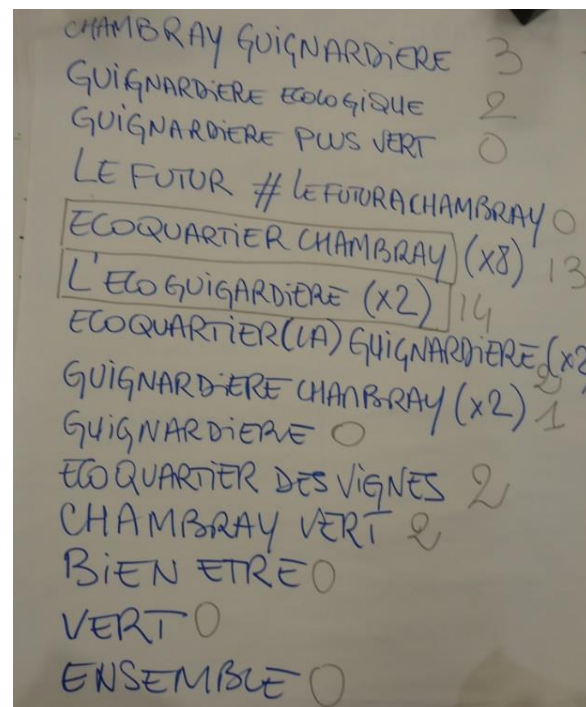 CHAMBRAY GUIGNARDIERE 3
GUIGNARDIERE ECOLOGIQUE 2
GUIGNARDIERE PLUS VERT 0
LE FUTUR # LEFUTURACHAMBRAY 0
ECOQUARTIER CHAMBRAY (X8) 13
L'ECOGUIGARDIERE (X2) 14
ECOQUARTIER (LA) GUIGNARDIERE (X2 2
GUIGNARDIERE CHAMBRAY (X2) 1
GUIGNARDIERE 0
ECOQUARTIER DES VIGNES 2
CHAMBRAY VERT 2
BIEN ETRE 0
VERT 0
ENSEMBLE 0